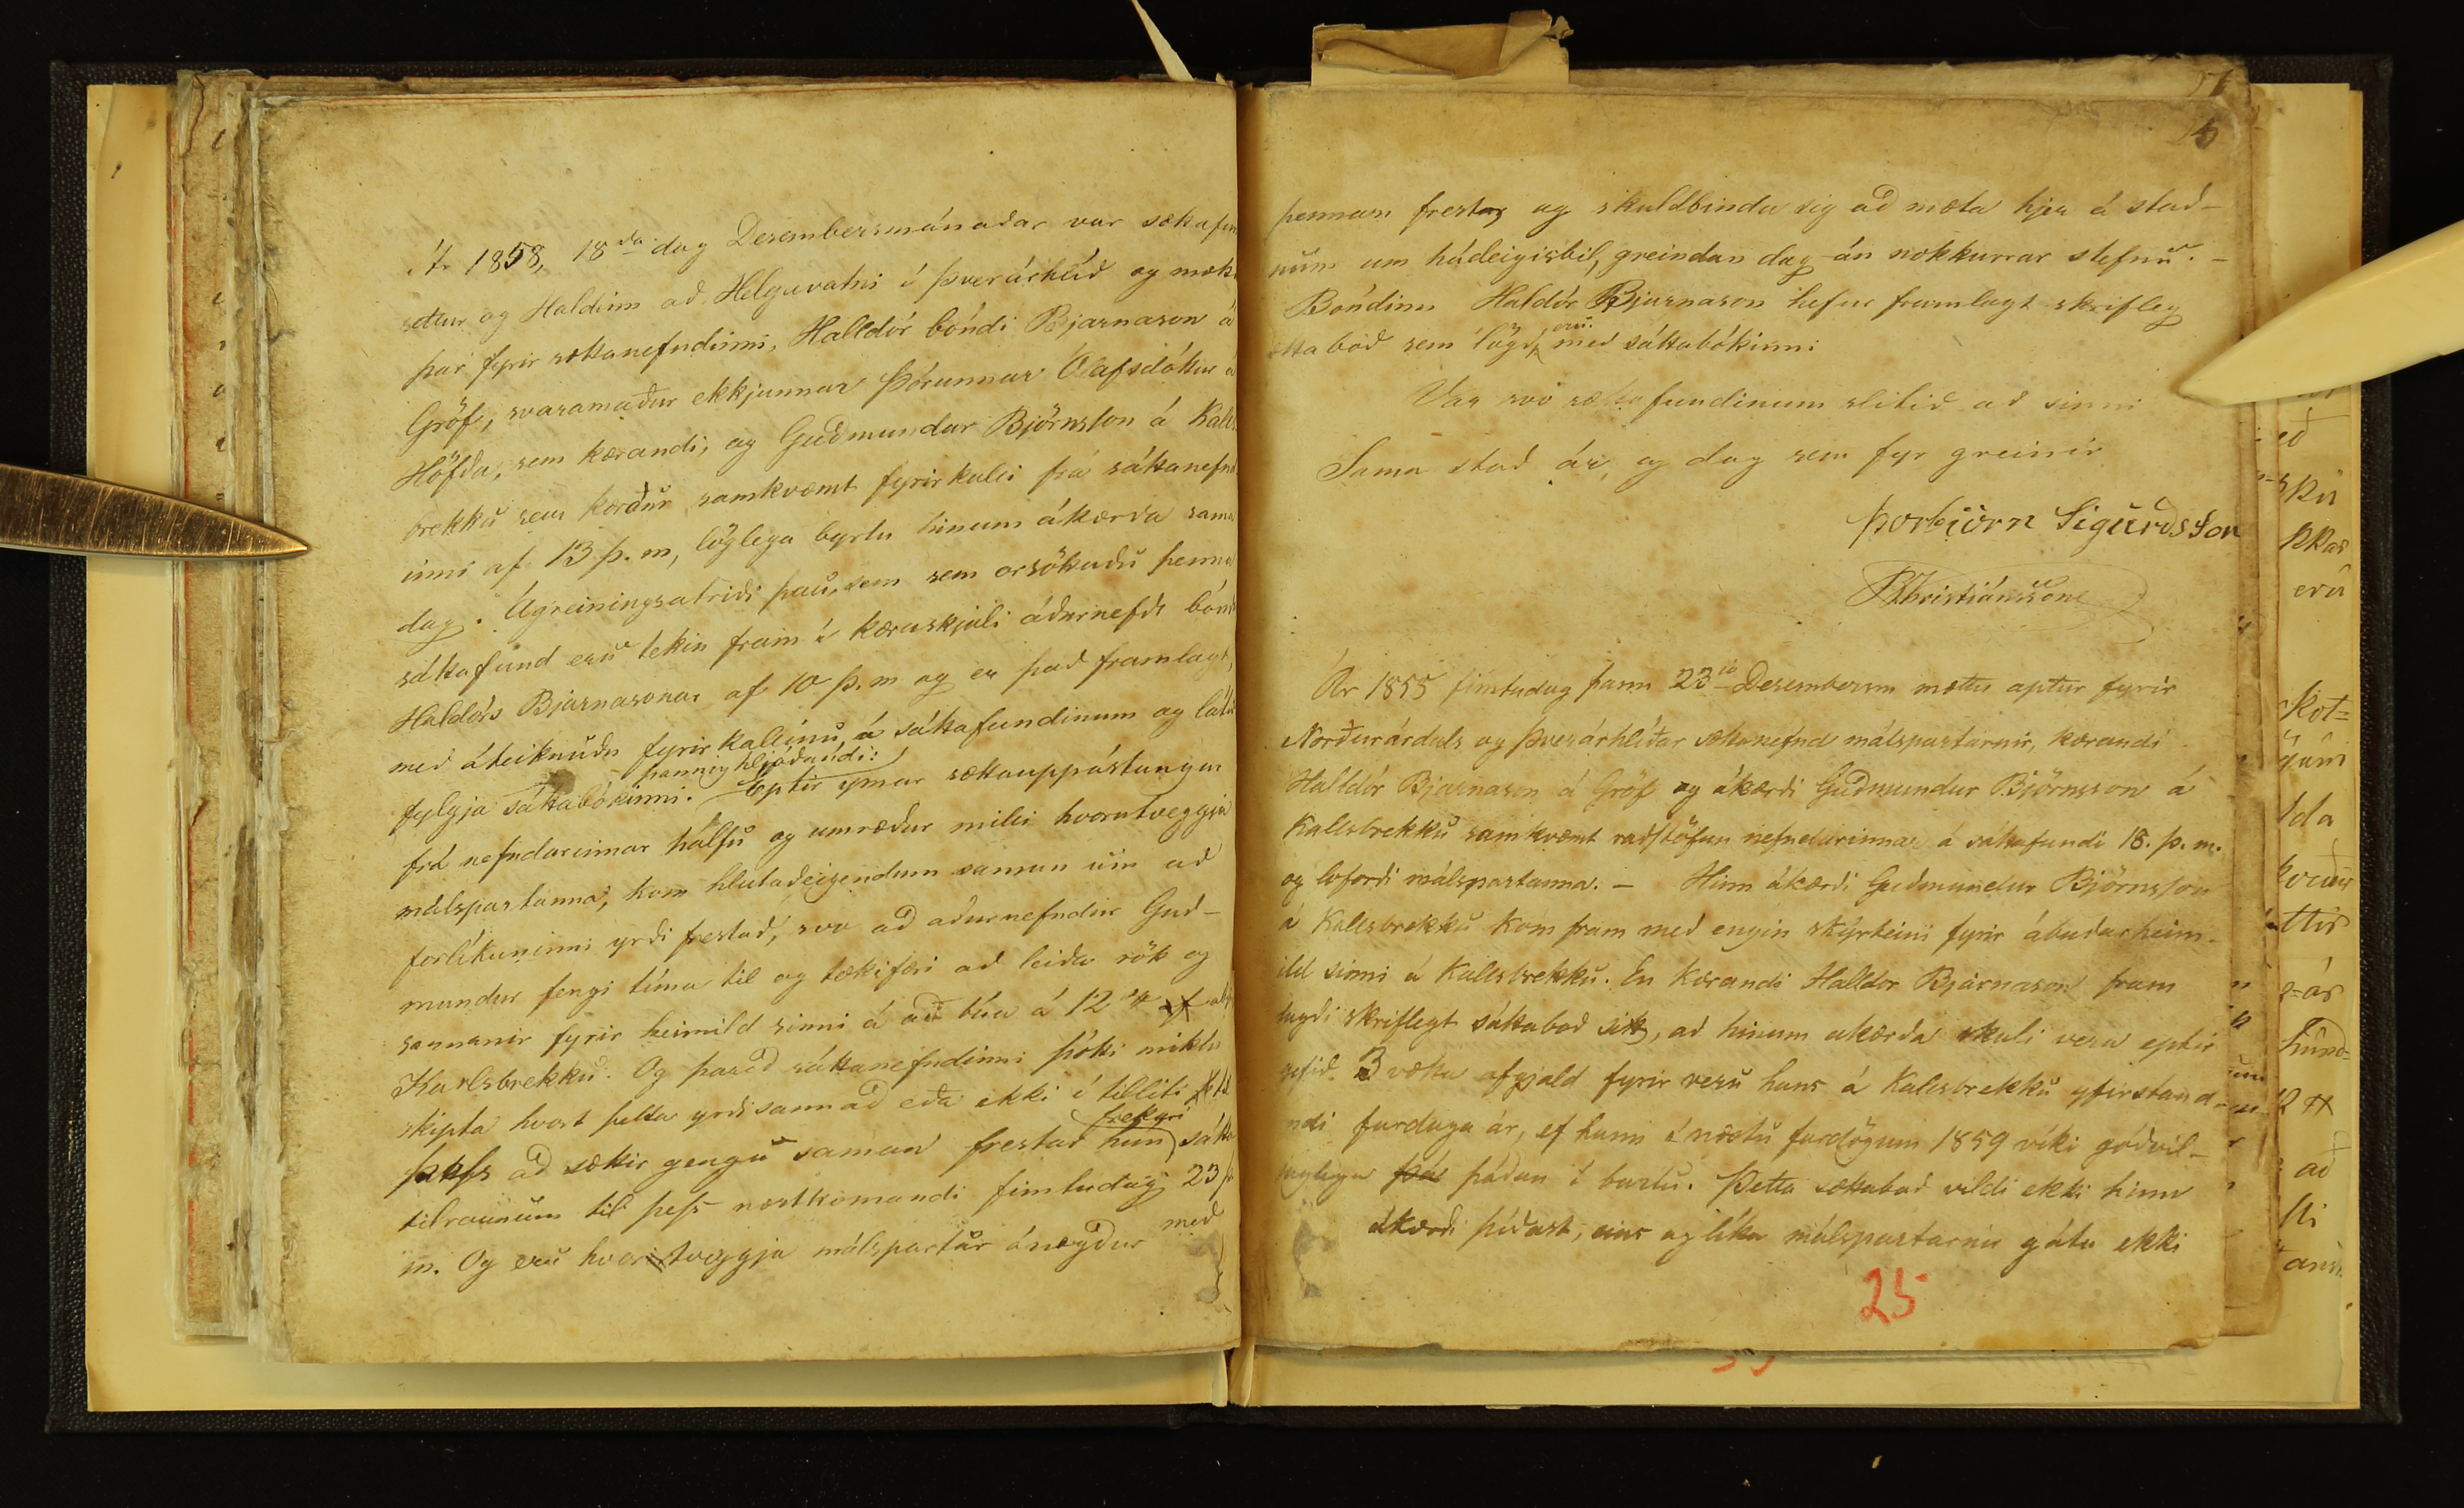 Ár 1858, 18da dag Desembersmánaðar var sækafun
settur og Haldinn að Helguvatni í Þverárhlíð og mæt
þar fyrir sættanefndinni, Halldór bóndi Bjarnason á
Gröf, svaramaður ekkjunnar Þórunnar Ólafsdóttur á
Höfða, sem kærandi, og Guðmundur Björnsson á Kalls
brekku sem kærður samkvæmt fyrirkalli frá sáttanefnd
inni af 13 þ. m, löglega byrtu hinum ákærða sama
dag. Ágreiningsatriði þau, sem sem orsökuðu penna
sáttafund eru tekin fram í kæruskjali áðurnefds bónd
Haldórs Bjarnasonar af 10 þ. m og er það framlagt,
með áteiknuðu fyrirkallinu, á sáttafundinum og látið
þannig hljóðandi:
fylgja sáttabókinni. Eptir ýmar sættauppástungur
frá nefndarinnar hálfu og umræður milli hvorutveggja
málspartanna, kom hlutaðeigendum saman um að
forlíkuninni yrði frestað, svo að áðurnefndur Guð-
mundur fengi tíma til og tækifæri að leiða rök og
sannanir fyrir heimild sinni á að búa á 12
Karlsbrekku. Og þareð sáttanefndinni þóki miklu
skipta hvort þetta yrði sannað eða ekki í tilliti til
frekari
þess að sættir gengu saman frestað hún sátta
tilraunum til þess næstkomandi fimtudag 23 þ
m. Og eru hvorutveggja málspartar ánægður með
þennan frest og skuldbinda sig að mæta hjer á stað-
num um hádeigisbil, greindan dag án nokkurrar stefnu. -
Bóndinn Haldór Bjarnason hefur framlagt skrifleg
eru
ætta boð sem lögð með sáttabókinni
Var svo sættafundinum slitið að sinni
Sama stað ár, og dag sem fyr greinir
Þorbjörn Sigurðsson
BChristiánssone
Ár 1855 fimtudag þann 23ja Desemberm mættu aptur fyrir
Norðurárdals og Þverárhlíðar sættanefnd málspartarnir, kærandi
Halldór Bjarnason á Gröf og ákærði Guðmundur Björnsson á
Kallsbrekku samkvæmt ráðstöfun nefndarinnar á sáttafundi 18. þ. m.
og loforði málspartanna. - Hinn ákærði Guðmundur Björnsson
á Kallsbrekku kom fram með engin skýrteini fyrir ábúðarheim-
ild sinni á Kallsbrekku. En kærandi Halldór Bjarnason fram
lagði skriflegt sáttaboð sitt, að hinum ákærða skuli vera eptir
gefið 3 vætta afgjald fyrir veru hans á Kallsbrekku yfirstand-
ndi fardaga ár, ef hann í næstu fardögum 1859 víki góðvil-
uglega þar þaðan í burtu. Þetta sættaboð vildi ekki hinn
ákærði þíðast, eins og líka málspartarnir gátu ekki
25